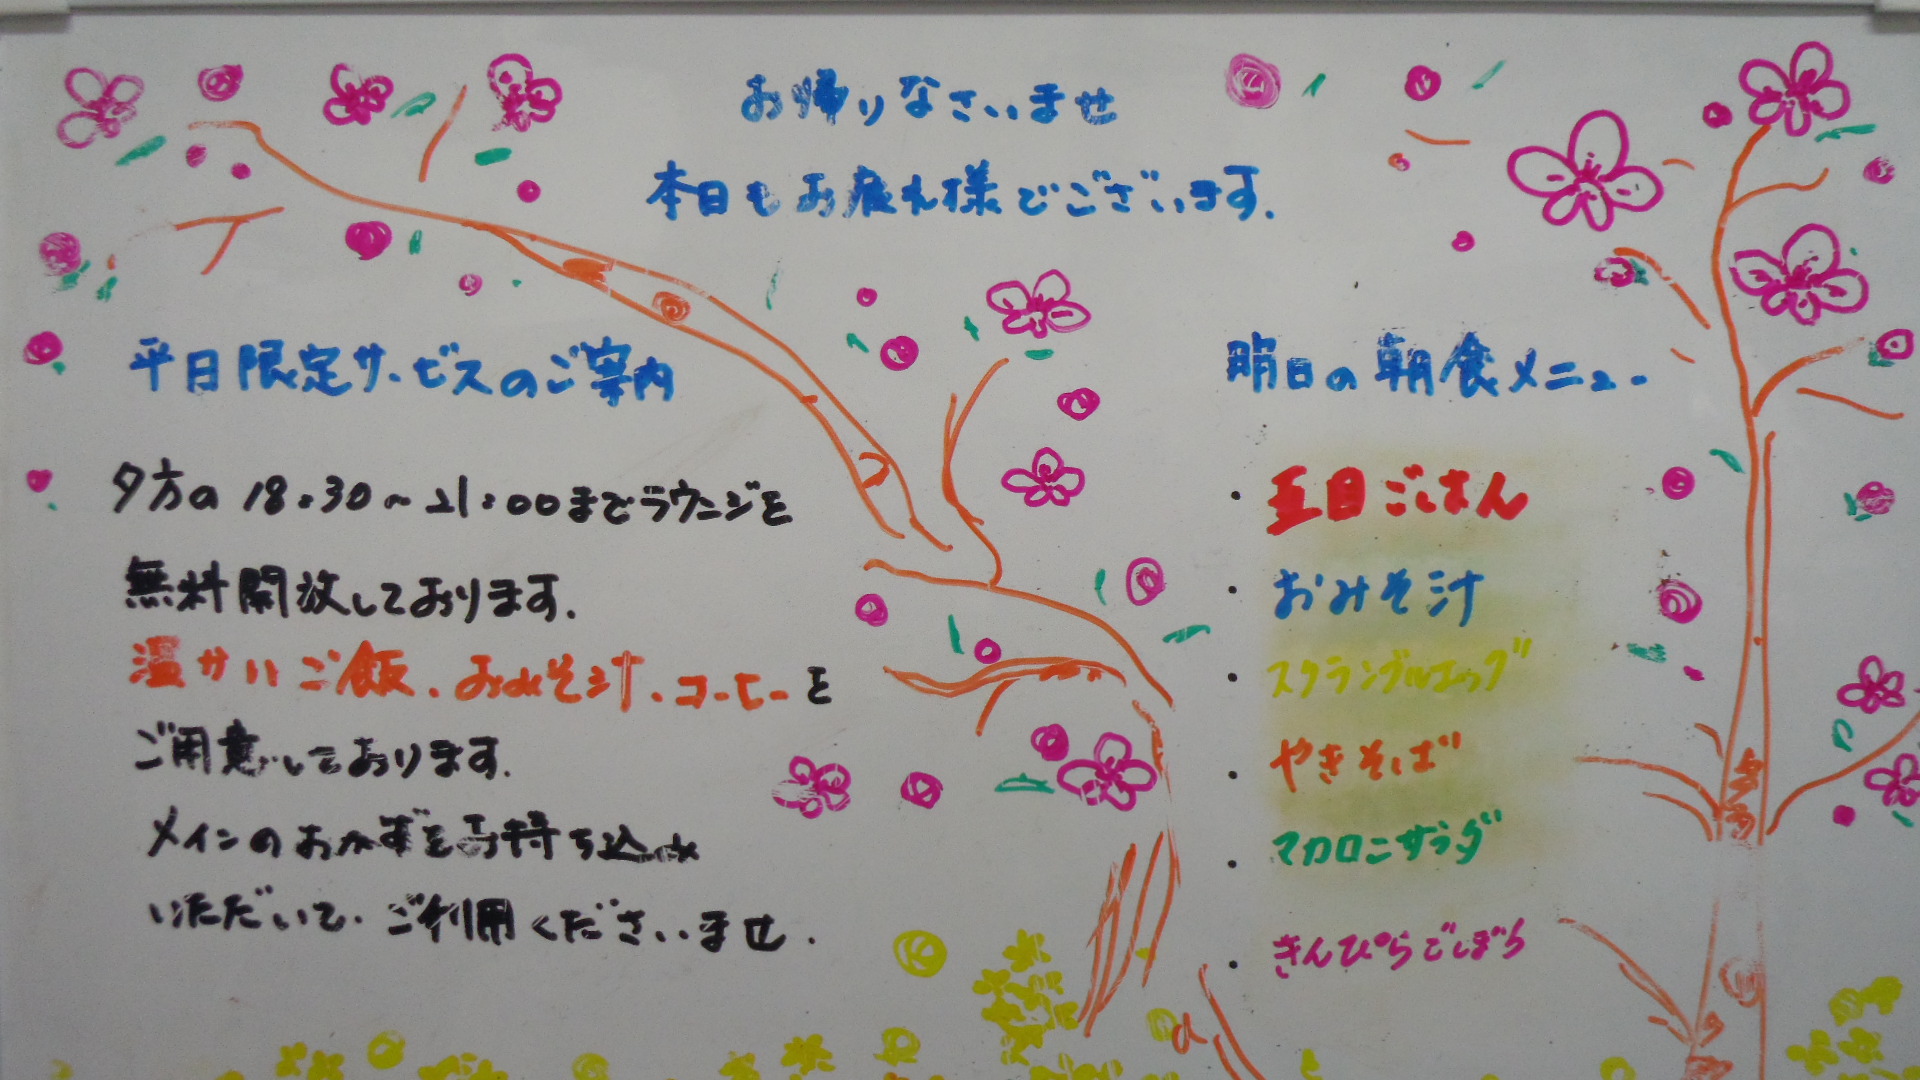 お帰りなさいませ
本日もお疲れ様でございます.
平日限定サービスのご案内
夕方の18:30～21:00までラウンジを
無料開放しております.
温かいご飯、おみそ汁、コーヒーを
ご用意しております.
メインのおかずをお持ち込み
いただいて、ご利用くださいませ.
明日の朝食メニュー
・五目ごはん
・おみそ汁
・スクランブルエッグ
・やきそば
・マカロニサラダ
・きんぴらごぼう